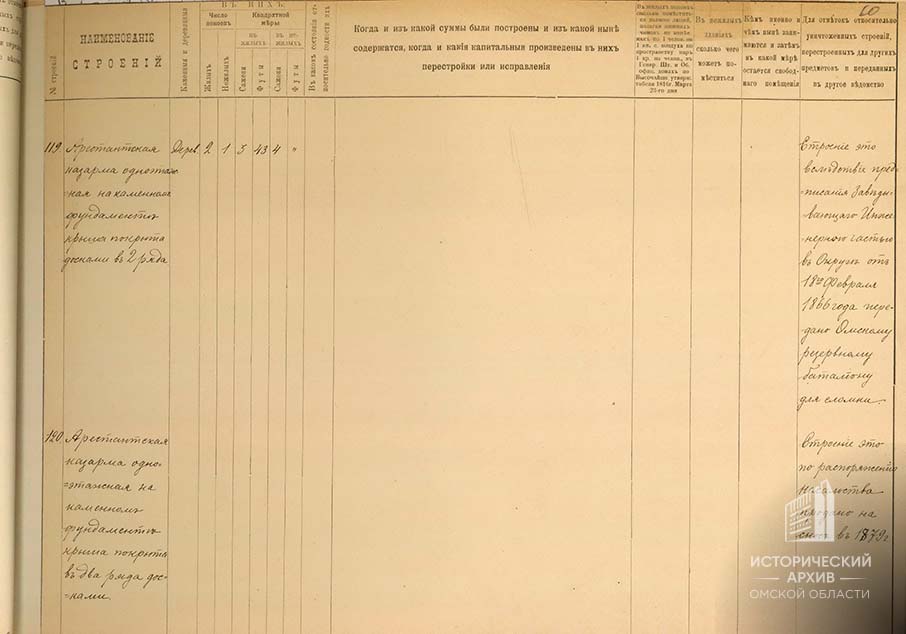 60
№ строеній
НАИМЕНОВАНІЕ
СТРОЕНІЙ
Каменныя и деревянныя
ВЪ НИХЪ:
Число
покоевъ
Квадратной
мѣры
въ жилыхъ
въ не-жилыхъ
Жилыхъ
Нежилыхъ
Сажени
Футы
Сажени
Футы
Въ какомъ состояніи относительно годности ихъ
Когда и изъ какой суммы были построены и изъ какой нынѣ
содержатся, когда и какія капитальныя произведены въ нихъ
перестройки или исправленія
Въ нежилыхъ
зданіяхъ
сколько чего
можетъ по-
мѣститься
Кѣмъ именно и
чѣмъ нынѣ зани-
маются и затѣмъ
въ какой мѣрѣ
остается свобод-
наго помѣщенія
Для отмѣтокъ относительно
уничтоженныхъ строеній,
перестроенныхъ для другихъ
предметовъ и переданныхъ
въ другое вѣдомство
119 Арестантская Дерев. 2 1 5 43 4 "
казарма одноэтаж-
=ная на каменномъ
фундаментѣ
крыша покрыта
досками въ 2 ряда
Строеніе это
вслѣдствіе пред-
писанія Завѣды-
вающаго Инже-
нерною частью
въ Округѣ отъ
18го Февраля
1866 года пере-
дано Омскому
резервному
баталіону
для сломки.
120 Арестантская
казарма одно-
=этажная на
каменномъ
фундаментѣ
крыша покрыта
въ два ряда дос-
=ками.
Строеніе это
по распоряженію
начальства
продано на
сносъ въ 1879 г.
ИСТОРИЧЕСКИЙ
АРХИВ
ОМСКОЙ ОБЛАСТИ